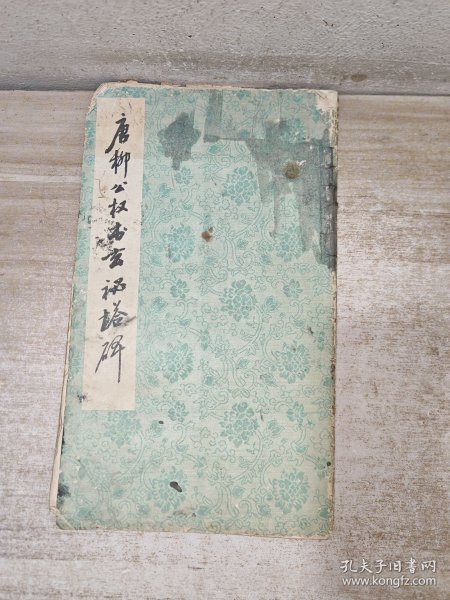 唐柳公权书玄祕塔碑
孔夫子旧书网
www.kongfz.com